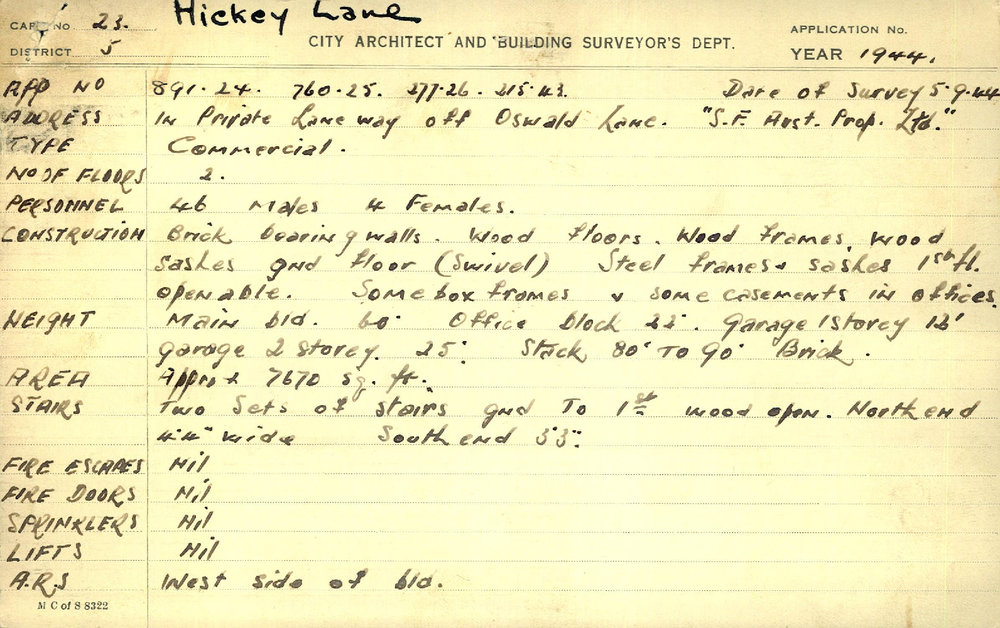 CARD No 23. Hickey Lane APPLICATION No.
DISTRICT 5 CITY ARCHITECT AND BUILDING SURVEYOR'S DEPT. YEAR 1944.
APP NO 891.24. 760.25. 277.26. 215.43. Date of Survey 5.9.44
ADDRESS In Private Laneway off Oswald Lane. "S.F. Aust. Prop. Ltd."
TYPE Commercial.
NO OF FLOORS 2.
PERSONNEL 46 Males 4 Females.
CONSTRUCTION Brick bearing walls. Wood floors. Wood frames, wood
sashes gnd floor (swivel) Steel frames & sashes 1st fl.
openable. Some box frames & some casements in offices.
HEIGHT Main bld. 60' Office block 22'. Garage 1 Storey 12'
garage 2 storey. 25'. Stack 80' To 90' Brick.
AREA Approx 7670 sq. ft.
STAIRS Two Sets of stairs gnd To 1st wood open. North end
4'4" wide South end 3'3".
FIRE ESCAPES Nil
FIRE DOORS Nil
SPRINKLERS Nil
LIFTS Nil
A.R.S West side of bld.
M C of S 8322